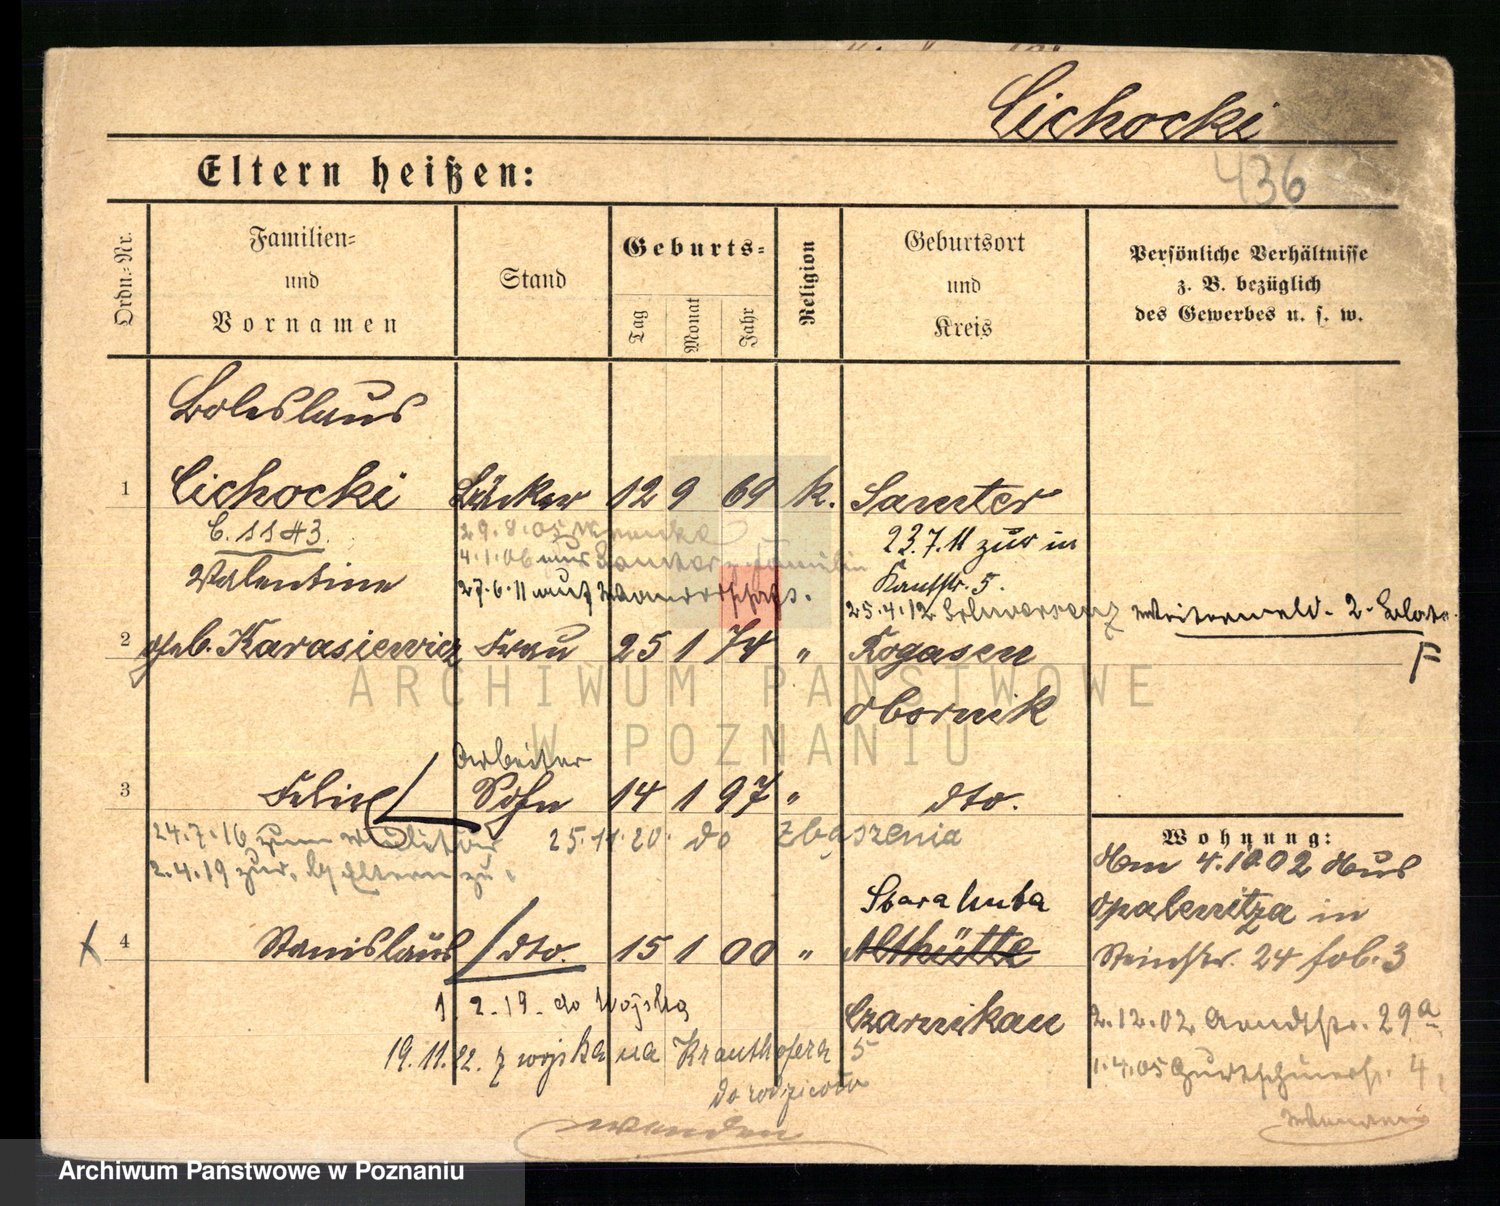 Cichocki
436
Eltern heißen:
Ordn.-Nr.
Familien-
und
Vornamen
Stand
Geburts-
Tag
Monat
Jahr
Religion
Geburtsort
und
Kreis
Persönliche Verhältnisse
z. B. bezüglich
des Gewerbes u. s. w.
Boleslaus
1 Cichocki Bäcker 12 9 69 k. Samter
C. 1143.
29.8.05
4.1.06 aus Samter Familie
27.6.11 auf Wanderschaft.
23.7.11 zur in
Kantstr. 5.
25.4.12
Valentine
2 geb. Karasiewicz Frau 25 1 74 " Rogasen
F
Obornik
Arbeiter
3 Felix Sohn 14 1 97 " dto.
24.7.16 zum Militär
25.11.20. do Zbąszenia
2.4.19 zur. Eltern zu.
Wohnung:
Am 4.10.02 aus
Opalenitza in
Steinstr. 24 fol. 3
2.12.02 Arndtstr. 29a
1.4.05 4
Stara huta
4 Stanislaus dto. 15 1 00 " Althütte
Czarnikau
1.2.19. do Wojska
19.11.22. z wojska na Krauthofera 5
do rodziców
wenden
ARCHIWUM PAŃSTWOWE
W POZNANIU
Archiwum Państwowe w Poznaniu